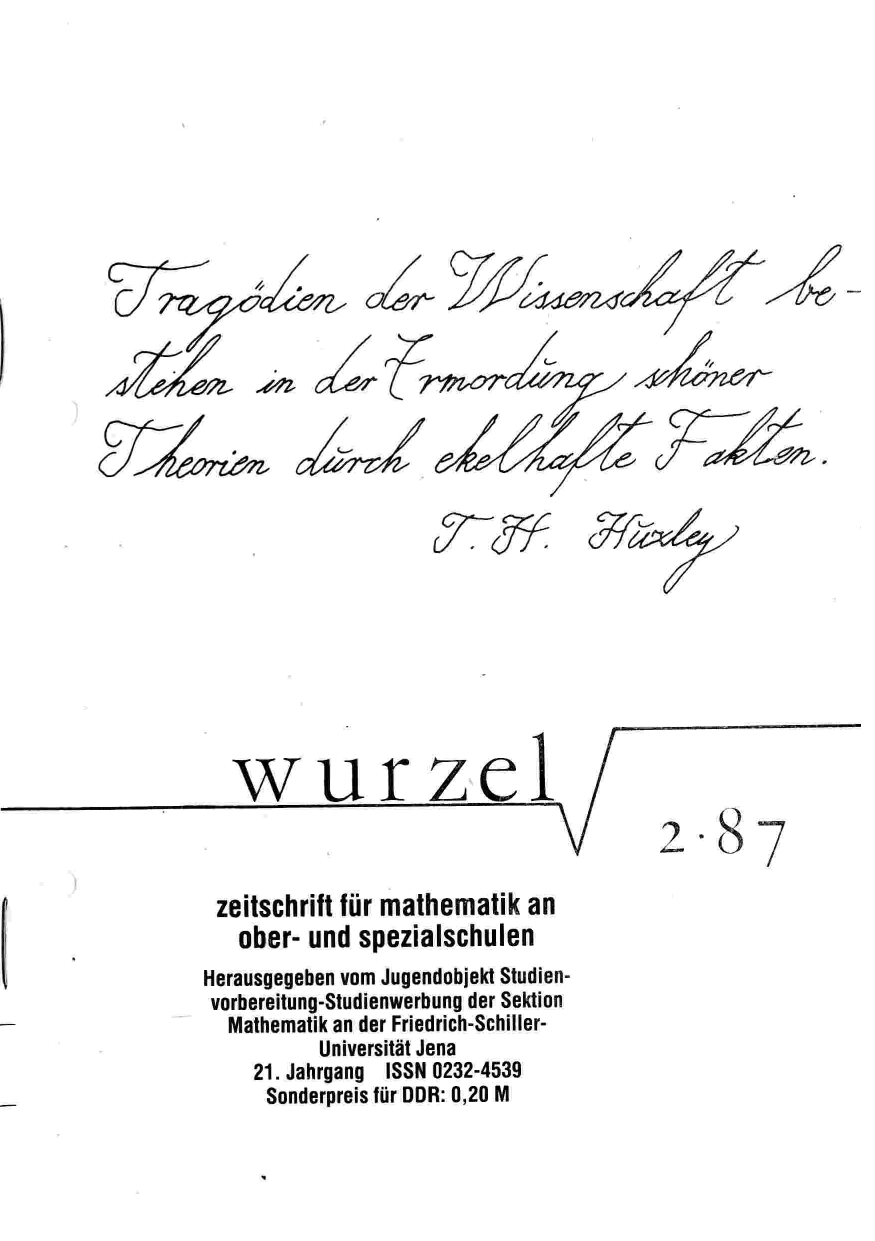 Tragödien der Wissenschaft be-
stehen in der Ermordung schöner
Theorien durch ekelhafte Fakten.
T. H. Huxley
wurzel
2·87
zeitschrift für mathematik an
ober- und spezialschulen
Herausgegeben vom Jugendobjekt Studien-
vorbereitung-Studienwerbung der Sektion
Mathematik an der Friedrich-Schiller-
Universität Jena
21. Jahrgang ISSN 0232-4539
Sonderpreis für DDR: 0,20 M